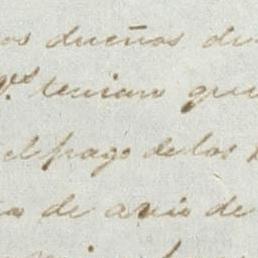 os dueños de
V.s tenian que
el pago de los
de avio de